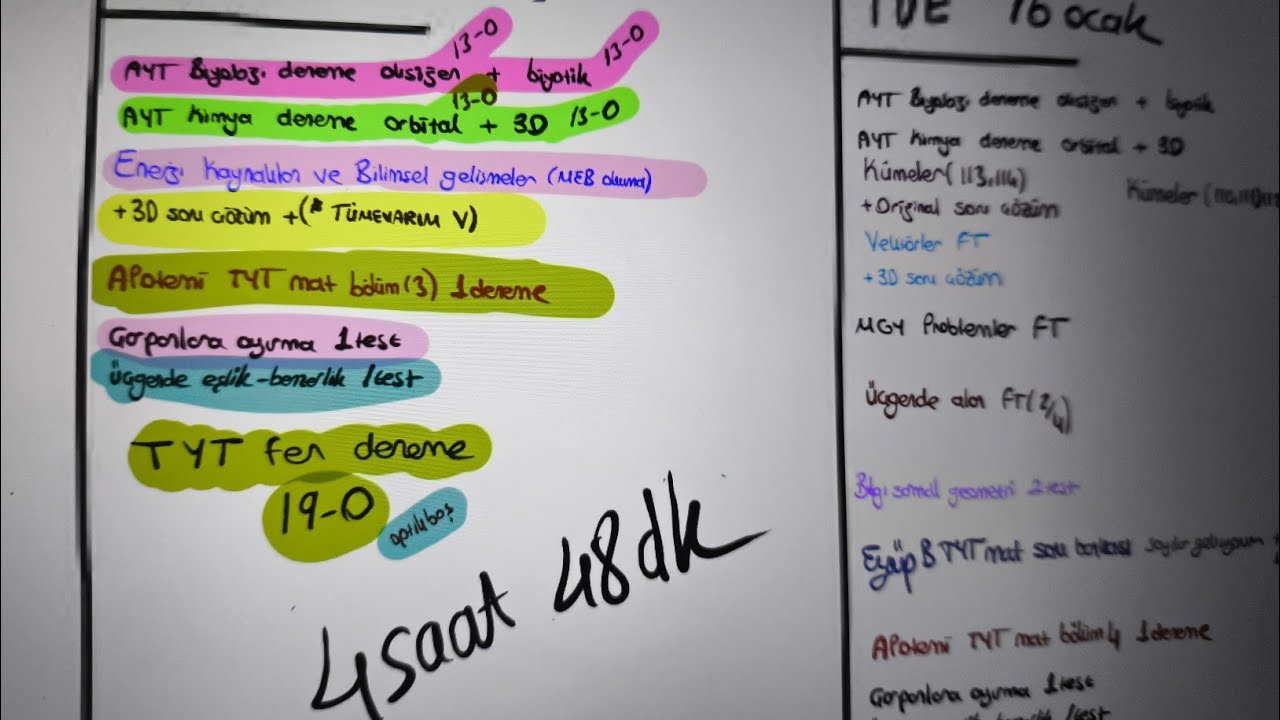 13-0
13-0
AYT Biyoloji deneme oksijen + biyotik
13-0
AYT Kimya deneme orbital + 3D 13-0
Enerji Kaynakları ve Bilimsel gelişmeler (MEB okuma)
+ 3D soru çözüm + (* TÜMEVARIM V)
APotemi TYT mat bölüm (3) 1 deneme
Çarpanlara ayırma 1 test
Üçgende eşlik-benzerlik 1 test
TYT fen deneme
19-0
4 saat 48 dk
TUE 16 ocak
AYT Biyoloji deneme oksijen + biyotik
AYT Kimya deneme orbital + 3D
Kümeler (113,114)
Kümeler
+ Orijinal soru çözüm
Vektörler FT
+ 3D soru çözüm
MGY Problemler FT
Üçgende alan FT (2/4)
Bilgi sarmal geometri 2 test
Eyüp B TYT mat soru bankası
APotemi TYT mat bölüm 4 1 deneme
Çarpanlara ayırma 1 test